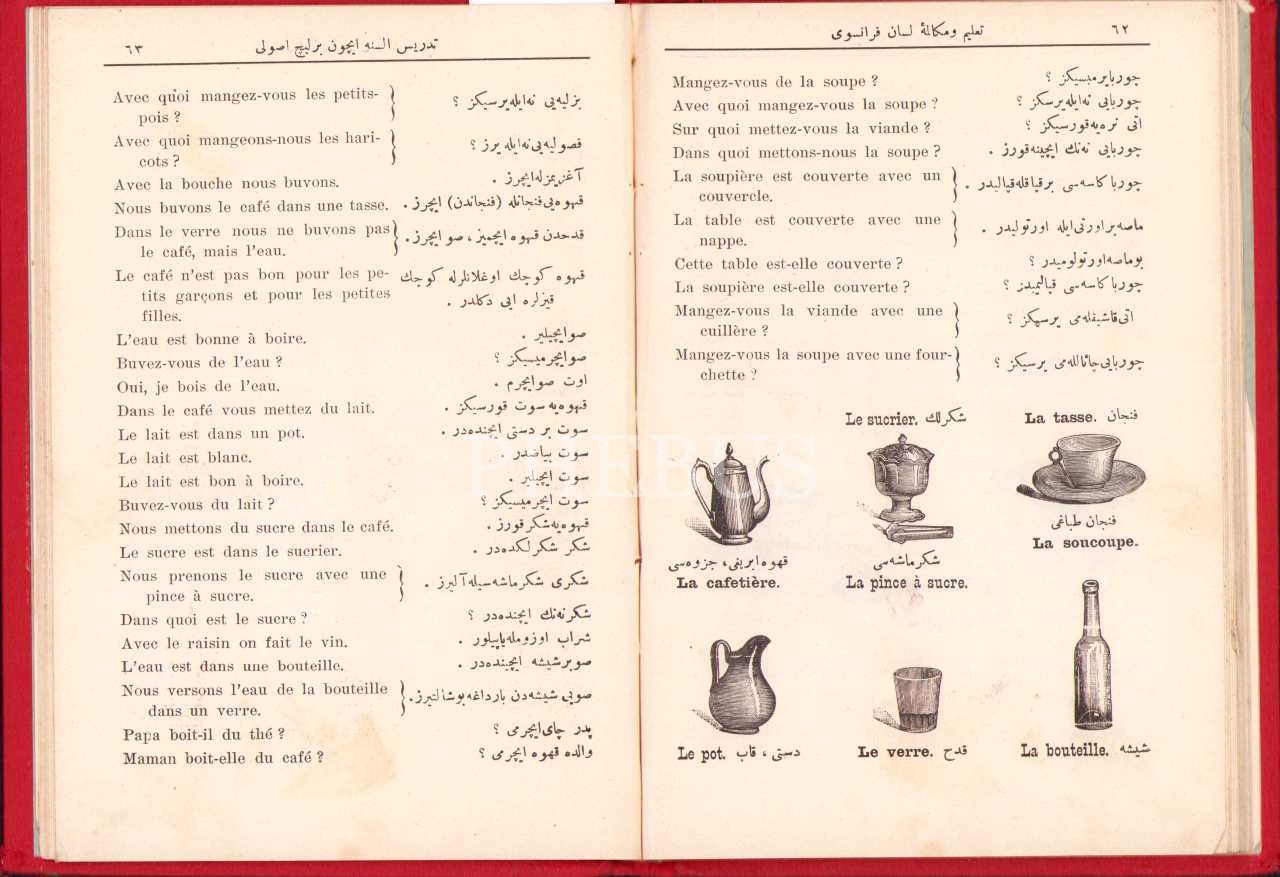 ٦٢
تعليم ومكالمهٔ لسان فرانسوى
Mangez-vous de la soupe ? چوربايرميسيكز ؟
Avec quoi mangez-vous la soupe ? چوربايى نه‌ايله‌يرسكز ؟
Sur quoi mettez-vous la viande ? اتى نره‌يه‌قورسيكز ؟
Dans quoi mettons-nous la soupe ? چوربايى نه‌نك ايچينه‌قورز .
La soupière est couverte avec un
couvercle. چوربا كاسه‌سى برقپاقله‌قپاليدر .
La table est couverte avec une
nappe. ماصه‌براورتى‌ايله اورتوليدر .
Cette table est-elle couverte ? بوماصه‌اورتولوميدر ؟
La soupière est-elle couverte ? چوربا كاسه‌سى قپاليميدز ؟
Mangez-vous la viande avec une
cuillère ? اتى‌قاشيقله‌مى يرسيكز ؟
Mangez-vous la soupe avec une four-
chette ? چوربايى‌چاتاللـه‌مى يرسيكز ؟
Le sucrier. شكرلك
La tasse. فنجان
فنجان طباغى
La soucoupe.
قهوه‌ابريقى، جزوه‌سى
La cafetière.
شكرماشه‌سى
La pince à sucre.
Le pot. دستى ، قاب
Le verre. قدح
La bouteille. شيشه
تدريس السنه ايچون برليچ اصولى
٦٣
Avec quoi mangez-vous les petits-
pois ? بزليه‌يى نه‌ايله‌يرسيكز ؟
Avec quoi mangeons-nous les hari-
cots ? فصوليه‌يى‌نه‌ايله‌يرز ؟
Avec la bouche nous buvons. آغزيمزله‌ايچرز .
Nous buvons le café dans une tasse. قهوه‌يى‌فنجانله (فنجاندن) ايچرز.
Dans le verre nous ne buvons pas
le café, mais l'eau. قدحدن قهوه ايچميز ، صو ايچرز.
Le café n'est pas bon pour les pe- قهوه كوچك اوغلانلرله كوچك
tits garçons et pour les petites قيزلره ايى دكلدر .
filles.
L'eau est bonne à boire. صوايچيلير .
Buvez-vous de l'eau ? صوايچرميسيكز ؟
Oui, je bois de l'eau. اوت صوايچرم .
Dans le café vous mettez du lait. قهوه‌يه سوت قورسيكز .
Le lait est dans un pot. سوت بر دستى ايچنده‌در .
Le lait est blanc. سوت بياضدر .
Le lait est bon à boire. سوت ايچيلير .
Buvez-vous du lait ? سوت ايچرميسيكز ؟
Nous mettons du sucre dans le café. قهوه‌يه‌شكرقورز .
Le sucre est dans le sucrier. شكر شكرلكده‌در .
Nous prenons le sucre avec une
pince à sucre. شكرى شكرماشه‌سيله‌آليرز .
Dans quoi est le sucre ? شكرنه‌نك ايچنده‌در ؟
Avec le raisin on fait le vin. شراب اوزومله‌ياپيلور .
L'eau est dans une bouteille. صوبرشيشه ايچينده‌در .
Nous versons l'eau de la bouteille
dans un verre. صويى شيشه‌دن بارداغه‌بوشالتيرز.
Papa boit-il du thé ? پدر چاى‌ايچرمى ؟
Maman boit-elle du café ? والده قهوه ايچرمى ؟
PHEBUS